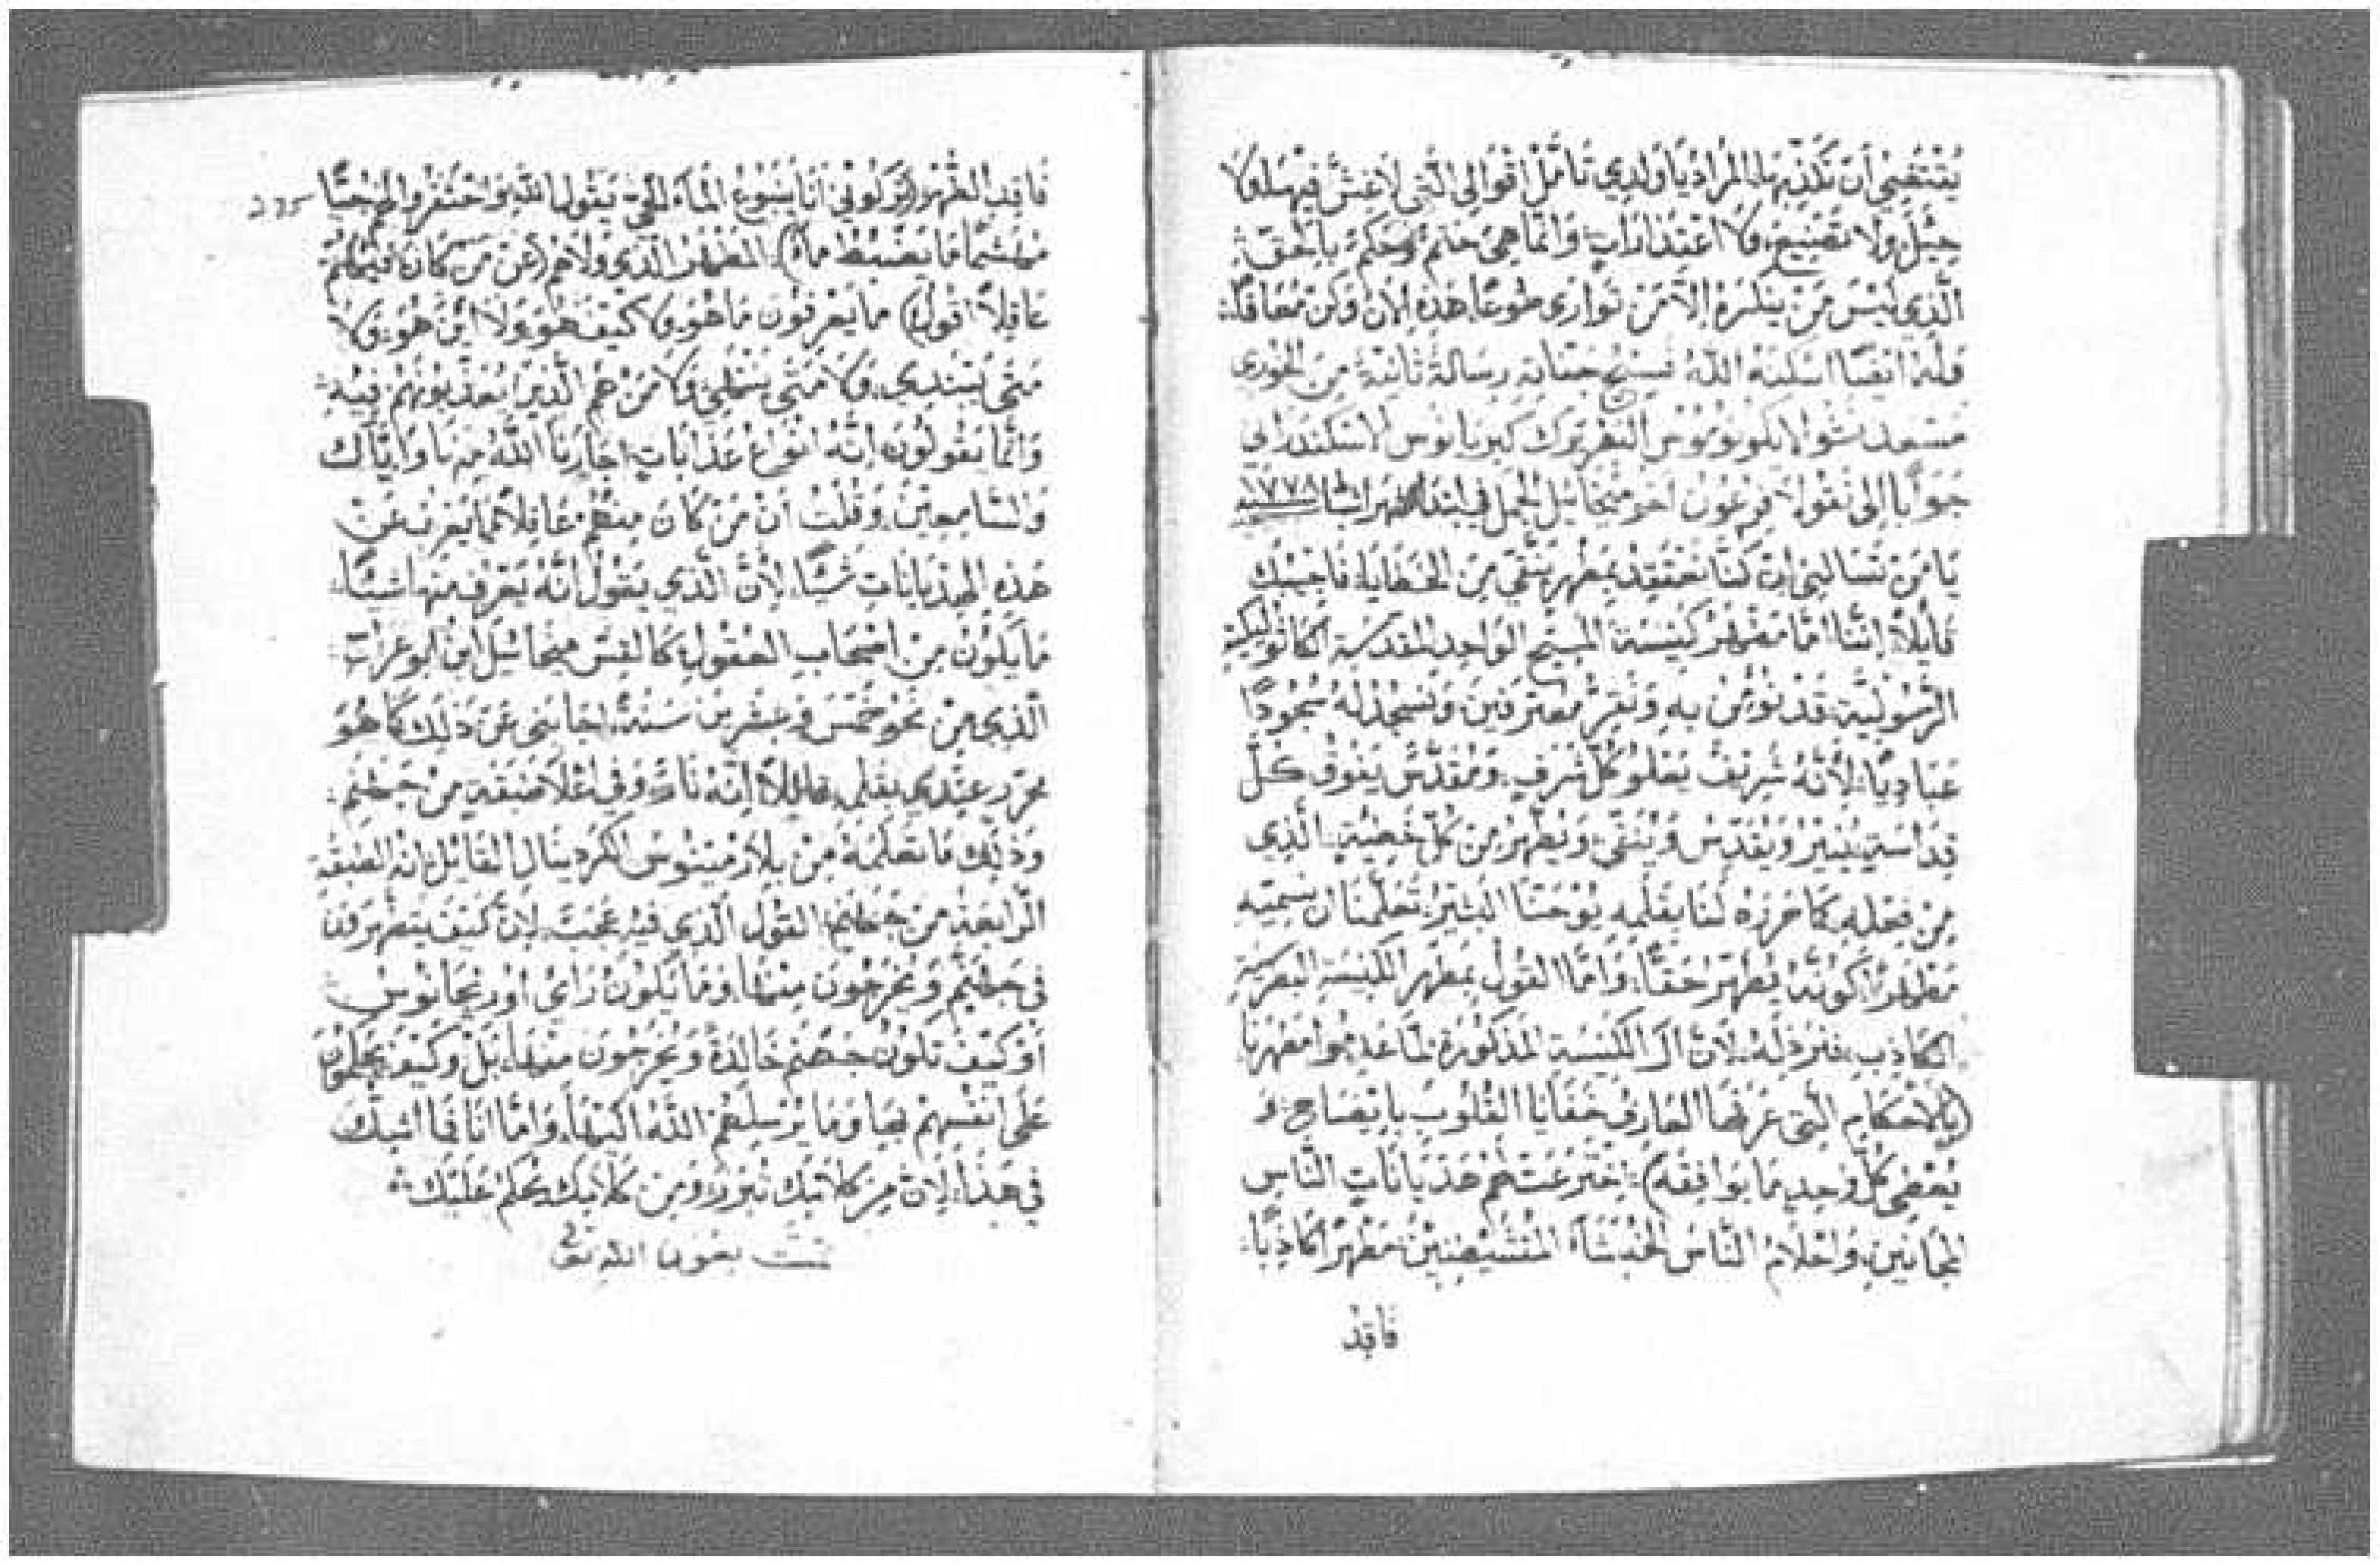 يَا وَلَدِي تَأمَّلْ أقْوَالِي الَّتِي لَا غِشَّ فِيهَا وَلَا
وَلَا تَصْنِيع وَلَا وَإنَّمَا هِيَ بِالْحَقّ
الَّذِي لَيْسَ مَنْ يُنْكِرَهُ إلَّا مَنْ تَوَارَى طَوْعًا هَذِهِ الآنَ وَكُنْ مُعَافًا
وَلَهُ أيْضًا اللَّه رِسَالَة ثَانِيَة مِنَ الخُورِي
الاسْكَنْدَرَانِي
جَوَابًا إلَى نَقُولَا فِرْعَوْن أخُو مِيخَائِيل الجَمَل فِي ابْتِدَاء شَهْر شبَاط ١٧٧٨
يَا مَنْ تَسْألُنِي إنْ كُنَّا نَعْتَقِدْ بِمَطْهَر يُنَقِّي مِنَ الخَطَايَا فَأجِيبُكَ
قَايِلًا إنَّنَا أمَّا مَطْهَر كَنِيسَة المَسِيح الوَاحِدَة المُقَدَّسَة الكَاثُولِيكِيَّة
الرَّسُولِيَّة قَدْ نُؤْمِنْ بِهِ وَنُقِرّ مُعْتَرِفِينَ وَنَسْجُدْ لَهُ سُجُودًا
عِبَادِيًّا لِأنَّهُ شَرِيفْ يَعْلُو كُلّ شَرَفٍ وَمُقَدَّسْ يَفُوقْ كُلّ
قَدَاسَةٍ يُنِيرْ وَيُقَدِّسْ وَيُنَقِّي وَيُطَهِّرْ مِنْ كُلّ خَطِيَّةٍ الَّذِي
مِنْ فِعْلِهِ كَمَا حَرَّرَهُ لَنَا بِقَلَمِهِ يُوحَنَّا البَشِير تَعَلَّمْنَا أنْ نُسَمِّيه
مَطْهَرًا كَوْنَهُ يُطَهِّر حَقًّا وَأمَّا القَوْل بِمَطْهَر الكَنِيسَة
الكَاذِبِ فَنَرْذِلُهُ لِأنَّ الكَنِيسَة المَذْكُورَة لَمَّا عَدِمُوا مَطْهَرَنَا
(بِالأحْكَامِ الَّتِي عَرَفَهَا العَارِفْ خَفَايَا القُلُوب بِإيضَاحٍ وَ
يُعْطِي كُلّ وَاحِدٍ مَا يُوَافِقُهُ) اخْتَرَعَتْ لَهُمْ هَذَيَانَات النَّاس
المَجَانِين وَأحْلَامُ النَّاسِ الخُبَثَاء المُتَشَيْطِنِينْ مَطْهَرًا كَاذِبًا
فَاقِدْ
فَاقِدِ الطُّهْر تَرَكُونِي أنَا يَنْبُوعُ المَاءِ الحَيّ يَقُولُ اللَّه وَاحْتَفَرُوا لَهُمْ جُبًّا
مُهَشَّمًا مَا يَضْبُطْ مَاءً المَطْهَر الَّذِي وَلَا هُمْ (عَنْ مَنْ كَانَ فِيهُمْ
عَاقِلًا أقُولُ) مَا يَعْرِفُونَ مَا هُوَ وَلَا كَيْفَ هُوَ وَلَا أيْنَ هُوَ وَلَا
مَتَى يَبْتَدِي وَلَا مَتَى يَنْتَهِي وَلَا مَنْ هُمُ الَّذِينَ يُعَذِّبُونَهُمْ فِيهِ
وَإنَّمَا يَقُولُونَ إنَّهُ أنْوَاعْ عَذَابَاتٍ أجَارَنَا اللَّهُ مِنْهَا وَإيَّاكَ
وَالسَّامِعِينَ وَقُلْتُ أنْ مَنْ كَانَ مِنْهُمْ عَاقِلًا مَا يَعْرِفْ عَنْ
هَذِهِ الهَذَيَانَاتِ شَيًّا لِأنَّ الَّذِي يَقُولُ أنَّهُ يَعْرِفْ مِنْهَا شَيًّا
مَا يَكُونْ مِنْ أصْحَابِ العُقُولِ كَالقِسّ مِيخَائِيل ابْن أبُو
الَّذِي مِنْ نَحْوِ خَمْسَ وَعِشْرِينَ سَنَةً أجَابَنِي عَنْ ذَلِكَ كَمَا هُوَ
مُحَرَّر عِنْدِي بِقَلَمِهِ قَايِلًا إنَّهُ نَارٌ وَفِي أعْلَا طَبَقَةٍ مِنْ جَهَنَّم
وَذَلِكَ مَا تَعَلَّمَهُ مِنْ بِلَّارْمِينُوس الكَرْدِينَال القَائِل إنَّهُ الطَّبَقَة
الرَّابِعَة مِنْ جَهَنَّم القَوْل الَّذِي فِيهِ عَجَبْ لِأنَّ كَيْفَ يَتَطَهَّرُونَ
فِي جَهَنَّمِ وَيَخْرُجُونَ مِنْهَا وَمَا يَكُونْ رَأيْ أُورِيجَانُوسْ
أوْ كَيْفَ تَكُونْ جَهَنَّمْ خَالِدَةً وَيَخْرُجُونَ مِنْهَا بَلْ وَكَيْفَ يَحْكُمُونَ
عَلَى أنْفُسِهِمْ بِهَا وَمَا يُرْسِلُهُمُ اللَّهُ إلَيْهَا وَأمَّا أنَا فَمَا
فِي هَذَا لِأنَّ مِنْ كَلَامِكَ تُبَرَّرْ وَمِنْ كَلَامِكَ يُحْكَمْ عَلَيْكَ
تمت بعون الله تعا